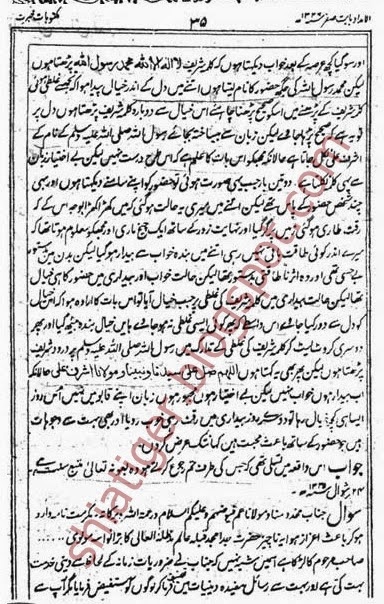 الامداد بابت صفر ۱۳۳۶ھ ۳۵
اور سو گیا کچھ عرصہ کے بعد خواب دیکھتا ہوں کہ کلمہ شریف لا الہ الا اللہ محمد رسول اللہ پڑھتا ہوں
لیکن محمد رسول اللہ کی جگہ حضور کا نام لیتا ہوں اتنے میں دل کے اندر خیال پیدا ہوا کہ تجھ سے غلطی ہوئی
کلمہ شریف کے پڑھنے میں اسکو صحیح پڑھنا چاہئے اس خیال سے دوبارہ کلمہ شریف پڑھتا ہوں دل پر
تو یہ ہے کہ صحیح پڑھا جاوے لیکن زبان سے بیساختہ بجائے رسول اللہ صلی اللہ علیہ وسلم کے نام کے
اشرف علی نکل جاتا ہے حالانکہ مجھکو اس بات کا علم ہے کہ اس طرح درست نہیں لیکن بے اختیار زبان
سے یہی کلمہ نکلتا ہے دو تین بار جب یہی صورت ہوئی تو حضور کو اپنے سامنے دیکھتا ہوں اور بھی
چند شخص حضور کے پاس تھے لیکن اتنے میں میری یہ حالت ہوگئی کہ میں کھڑا کھڑا بوجہ اس کے کہ
رقت طاری ہوگئی زمین پر گر گیا اور نہایت زور کے ساتھ ایک چیخ ماری اور مجھکو معلوم ہوتا تھا کہ
میرے اندر کوئی طاقت باقی نہیں رہی اتنے میں بندہ خواب سے بیدار ہو گیا لیکن بدن میں بدستور
بے حسی تھی اور وہ اثر نا طاقتی بدستور تھا لیکن حالت خواب اور بیداری میں حضور کا ہی خیال
تھا لیکن حالت بیداری میں کلمہ شریف کی غلطی پر جب خیال آیا تو اس بات کا ارادہ ہوا کہ اس خیال
کو دل سے دور کیا جائے اس واسطے کہ پھر کوئی ایسی غلطی نہ ہو جاوے بایں خیال بندہ بیٹھ گیا اور پھر
دوسری کروٹ لیٹ کر کلمہ شریف کی غلطی کے تدارک میں رسول اللہ صلی اللہ علیہ وسلم پر درود شریف
پڑھتا ہوں لیکن پھر بھی یہ کہتا ہوں اللہم صل علی سیدنا ونبینا ومولانا اشرف علی حالانکہ
اب بیدار ہوں خواب نہیں لیکن بے اختیار ہوں مجبور ہوں زبان اپنے قابو میں نہیں اس روز
ایسا ہی کچھ خیال رہا تو دوسرے روز بیداری میں رقت رہی خوب رویا اور بھی بہت سے وجوہات
ہیں جو حضور کے ساتھ باعث محبت ہیں کہاں تک عرض کروں
جواب اس واقعہ میں تسلی تھی کہ جس کی طرف تم رجوع کرتے ہو وہ بعونہ تعالیٰ متبع سنت ہے
۲۴ شوال ۱۳۳۵ھ
سوال جناب مخدومنا ومولانا عم فیوضہم وعلیکم السلام ورحمۃ اللہ وبرکاتہ مکرمت نامہ وارد
ہو کر باعث اعزاز ہوا
صاحب مرحوم کا لڑکا ہے اسمیں شک نہیں کہ جناب نے ضروریات زمانہ کے لحاظ سے دینی خدمت
بہت کی ہے اور بہت سے رسائل مفیدہ دینیات میں تصنیف فرما کر لوگوں کو مستفیض فرمایا مگر آپ سے
shiatiger.blogspot.com